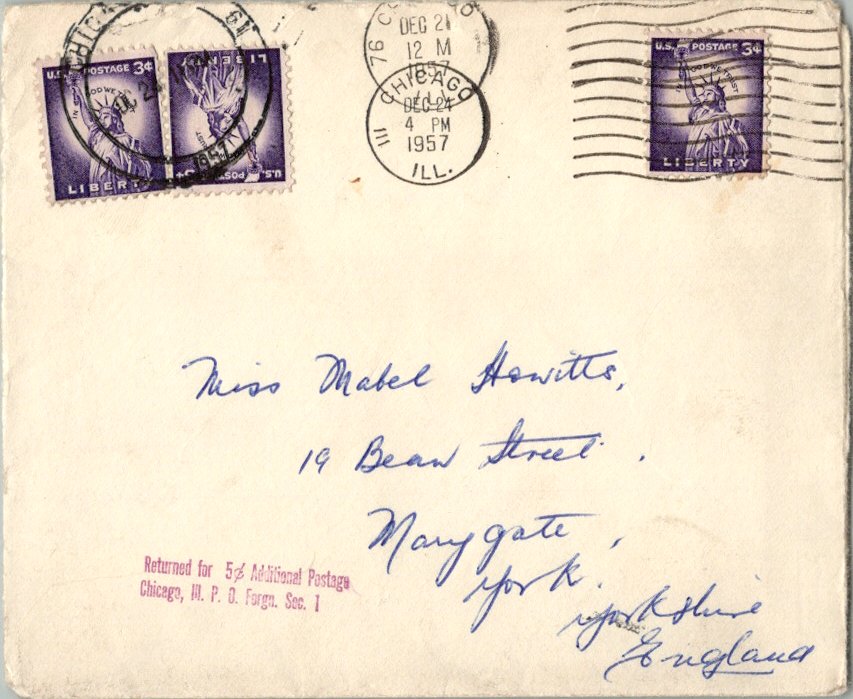 U.S. POSTAGE 3¢
IN GOD WE TRUST
LIBERTY
U.S. POSTAGE 3¢
LIBERTY
CHICAGO
DEC 24
1957
76
DEC 21
12 M
1957
ILL.
CHICAGO
DEC 24
4 PM
1957
ILL.
U.S. POSTAGE 3¢
IN GOD WE TRUST
LIBERTY
Miss Mabel Howitts,
19 Bean Street.
Marygate,
York.
Yorkshire
England
Returned for 5¢ Additional Postage
Chicago, Ill. P. O. Forgn. Sec. 1